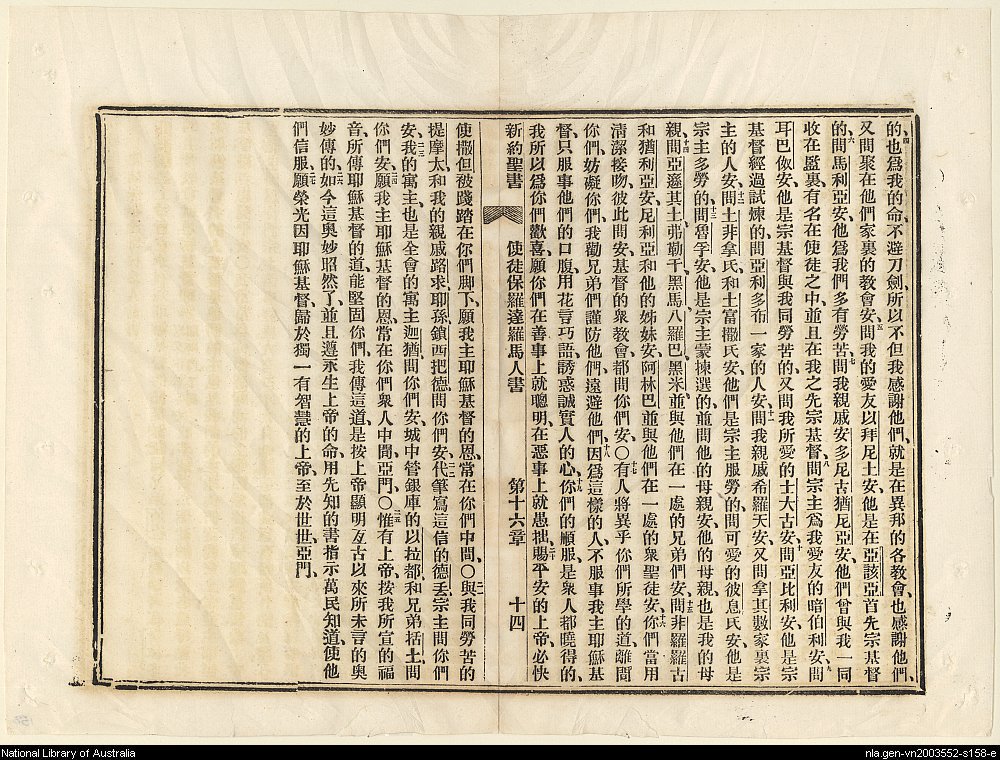 的、也爲我的命、不避刀劍、所以不但我感謝他們、就是在異邦的各教會、也感謝他們、
又問聚在他們家裏的教會安、問我的愛友以拜尼土安、他是在亞該亞首先宗基督
的、問馬利亞安、他爲我們多有勞苦、問我親戚安多尼古猶尼亞安、他們曾與我一同
收在監裏、有名在使徒之中、並且在我之先宗基督、問宗主爲我愛友的暗伯利安、問
耳巴伽安、他是宗基督與我同勞苦的、又問我所愛的士大古安、問亞比利安、他是宗
基督經過試煉的、問亞利多布一家的人安、問我親戚希羅天安、又問拿其數家裏宗
主的人安、問土非拿氏和土富撒氏安、他們是宗主服勞的、問可愛的彼息氏安、他是
宗主多勞的、問魯孚安、他是宗主蒙揀選的、並問他的母親安、他的母親、也是我的母
親、問亞遜其土、弗勒千、黑馬、八羅巴、黑米、並與他們在一處的兄弟們安、問非羅羅古
和猶利亞安、尼利亞和他的姊妹安、阿林巴並與他們在一處的衆聖徒安、你們當用
清潔接吻彼此問安、基督的衆教會、都問你們安、〇有人將異乎你們所學的道、離間
你們、妨礙你們、我勸兄弟們、謹防他們、遠避他們、因爲這樣的人、不服事我主耶穌基
督、只服事他們的口腹、用花言巧語、誘惑誠實人的心、你們的順服、是衆人都曉得的、
我所以爲你們歡喜、願你們在善事上就聰明、在惡事上就愚拙、賜平安的上帝、必快
新約聖書 使徒保羅達羅馬人書 第十六章 十四
使撒但被踐踏在你們脚下、願我主耶穌基督的恩、常在你們中間、〇與我同勞苦的
提摩太、和我的親戚路求、耶孫、鎖西把德、問你們安、代筆寫這信的德丟、宗主問你們
安、我的寓主、也是全會的寓主迦猶、問你們安、城中管銀庫的以拉都、和兄弟括土、問
你們安、願我主耶穌基督的恩、常在你們衆人中間、亞門、〇惟有上帝、按我所宣的福
音、所傳耶穌基督的道、能堅固你們、我傳這道、是按上帝顯明亙古以來所未言的奧
妙傳的、如今這奧妙昭然了、並且遵永生上帝的命、用先知的書、指示萬民知道、使他
們信服、願榮光因耶穌基督、歸於獨一有智慧的上帝、至於世世、亞門、
National Library of Australia
nla.gen-vn2003552-s158-e